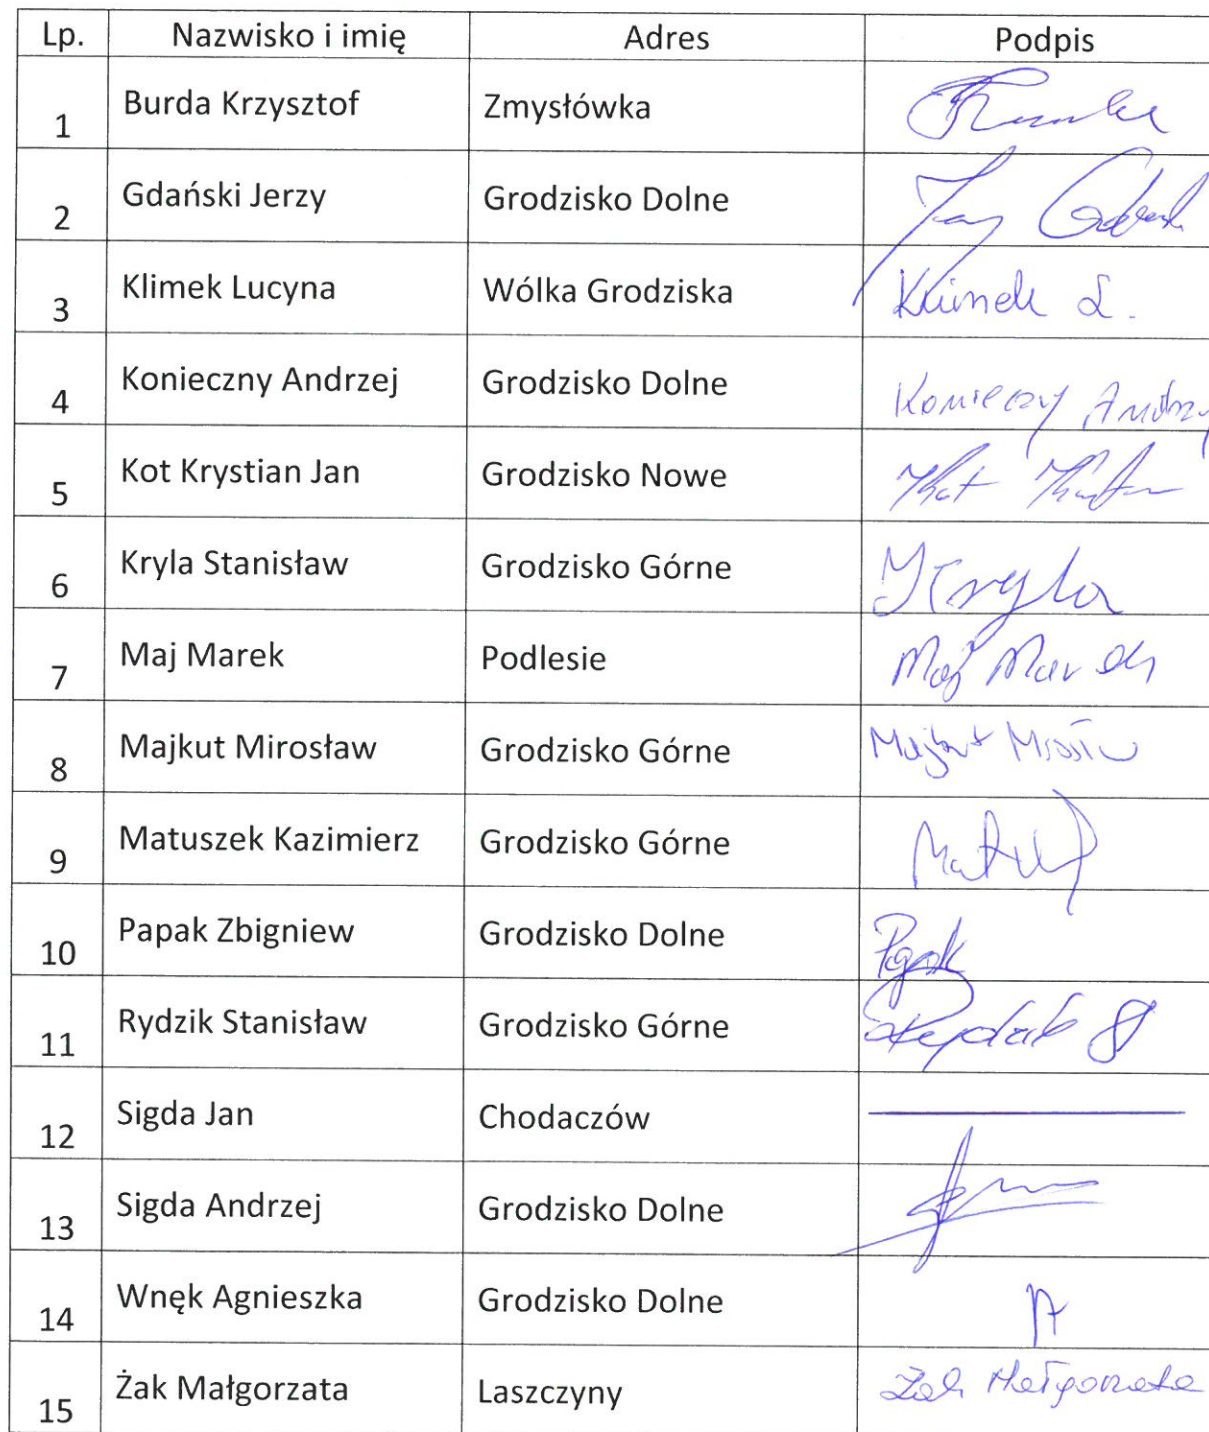 Lp. Nazwisko i imię Adres Podpis
1 Burda Krzysztof Zmysłówka
2 Gdański Jerzy Grodzisko Dolne
3 Klimek Lucyna Wólka Grodziska Klimek L.
4 Konieczny Andrzej Grodzisko Dolne Konieczy Andrzej
5 Kot Krystian Jan Grodzisko Nowe Kot
6 Kryla Stanisław Grodzisko Górne Kryla
7 Maj Marek Podlesie Maj Marek
8 Majkut Mirosław Grodzisko Górne Majkut
9 Matuszek Kazimierz Grodzisko Górne
10 Papak Zbigniew Grodzisko Dolne Papak
11 Rydzik Stanisław Grodzisko Górne Rydzik St
12 Sigda Jan Chodaczów
13 Sigda Andrzej Grodzisko Dolne
14 Wnęk Agnieszka Grodzisko Dolne
15 Żak Małgorzata Laszczyny Żak Małgorzata